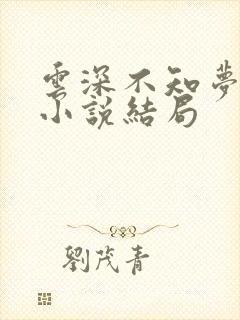 雲深不知夢
小說結局
劉茂青